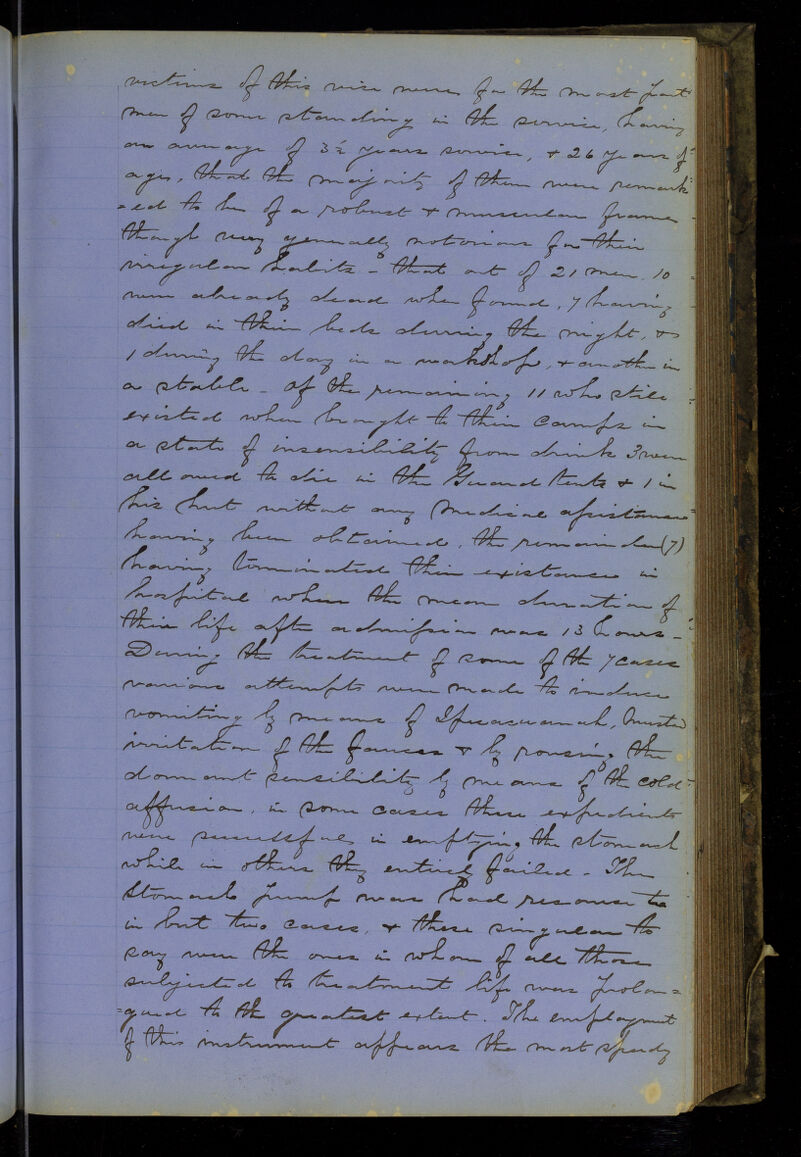 victims of this vice were for the most part
men of some standing in the service, having
an average of 3½ years service, & 26 years of
age, that the majority of them were remark=
=ed to be of a robust & muscular frame
though very generally notorious for their
irregular habits - that out of 21 men. 10
were already dead when found, 7 having
died in their beds during the night, &
1 during the day in a workshop, & another in
a stable - of the remaining 11 who still
existed when brought to their camps in
a state of insensibility from drink 3 were
allowed to die in the Guard tents & 1 in
his hut without any medical assistance
having been obtained, the remainder (7)
having terminated their existence in
hospital where the mean duration of
their life after admission was 13 hours -
During the treatment of some of the 7 cases
various attempts were made to induce
vomiting by means of Ipecacuanah, Mustd
irritation of the fauces & by rousing the
dormant sensibility by means of the cold
affusion, in some cases these expedients
were successful in emptying the stomach
while in others they entirely failed - The
Stomach pump was had recourse to
in but two cases, & these singular to
say were the ones in whom of all those
subjected to treatment life was prolon=
=gued to the greatest extent. The employment
of this instrument appears the most speedy